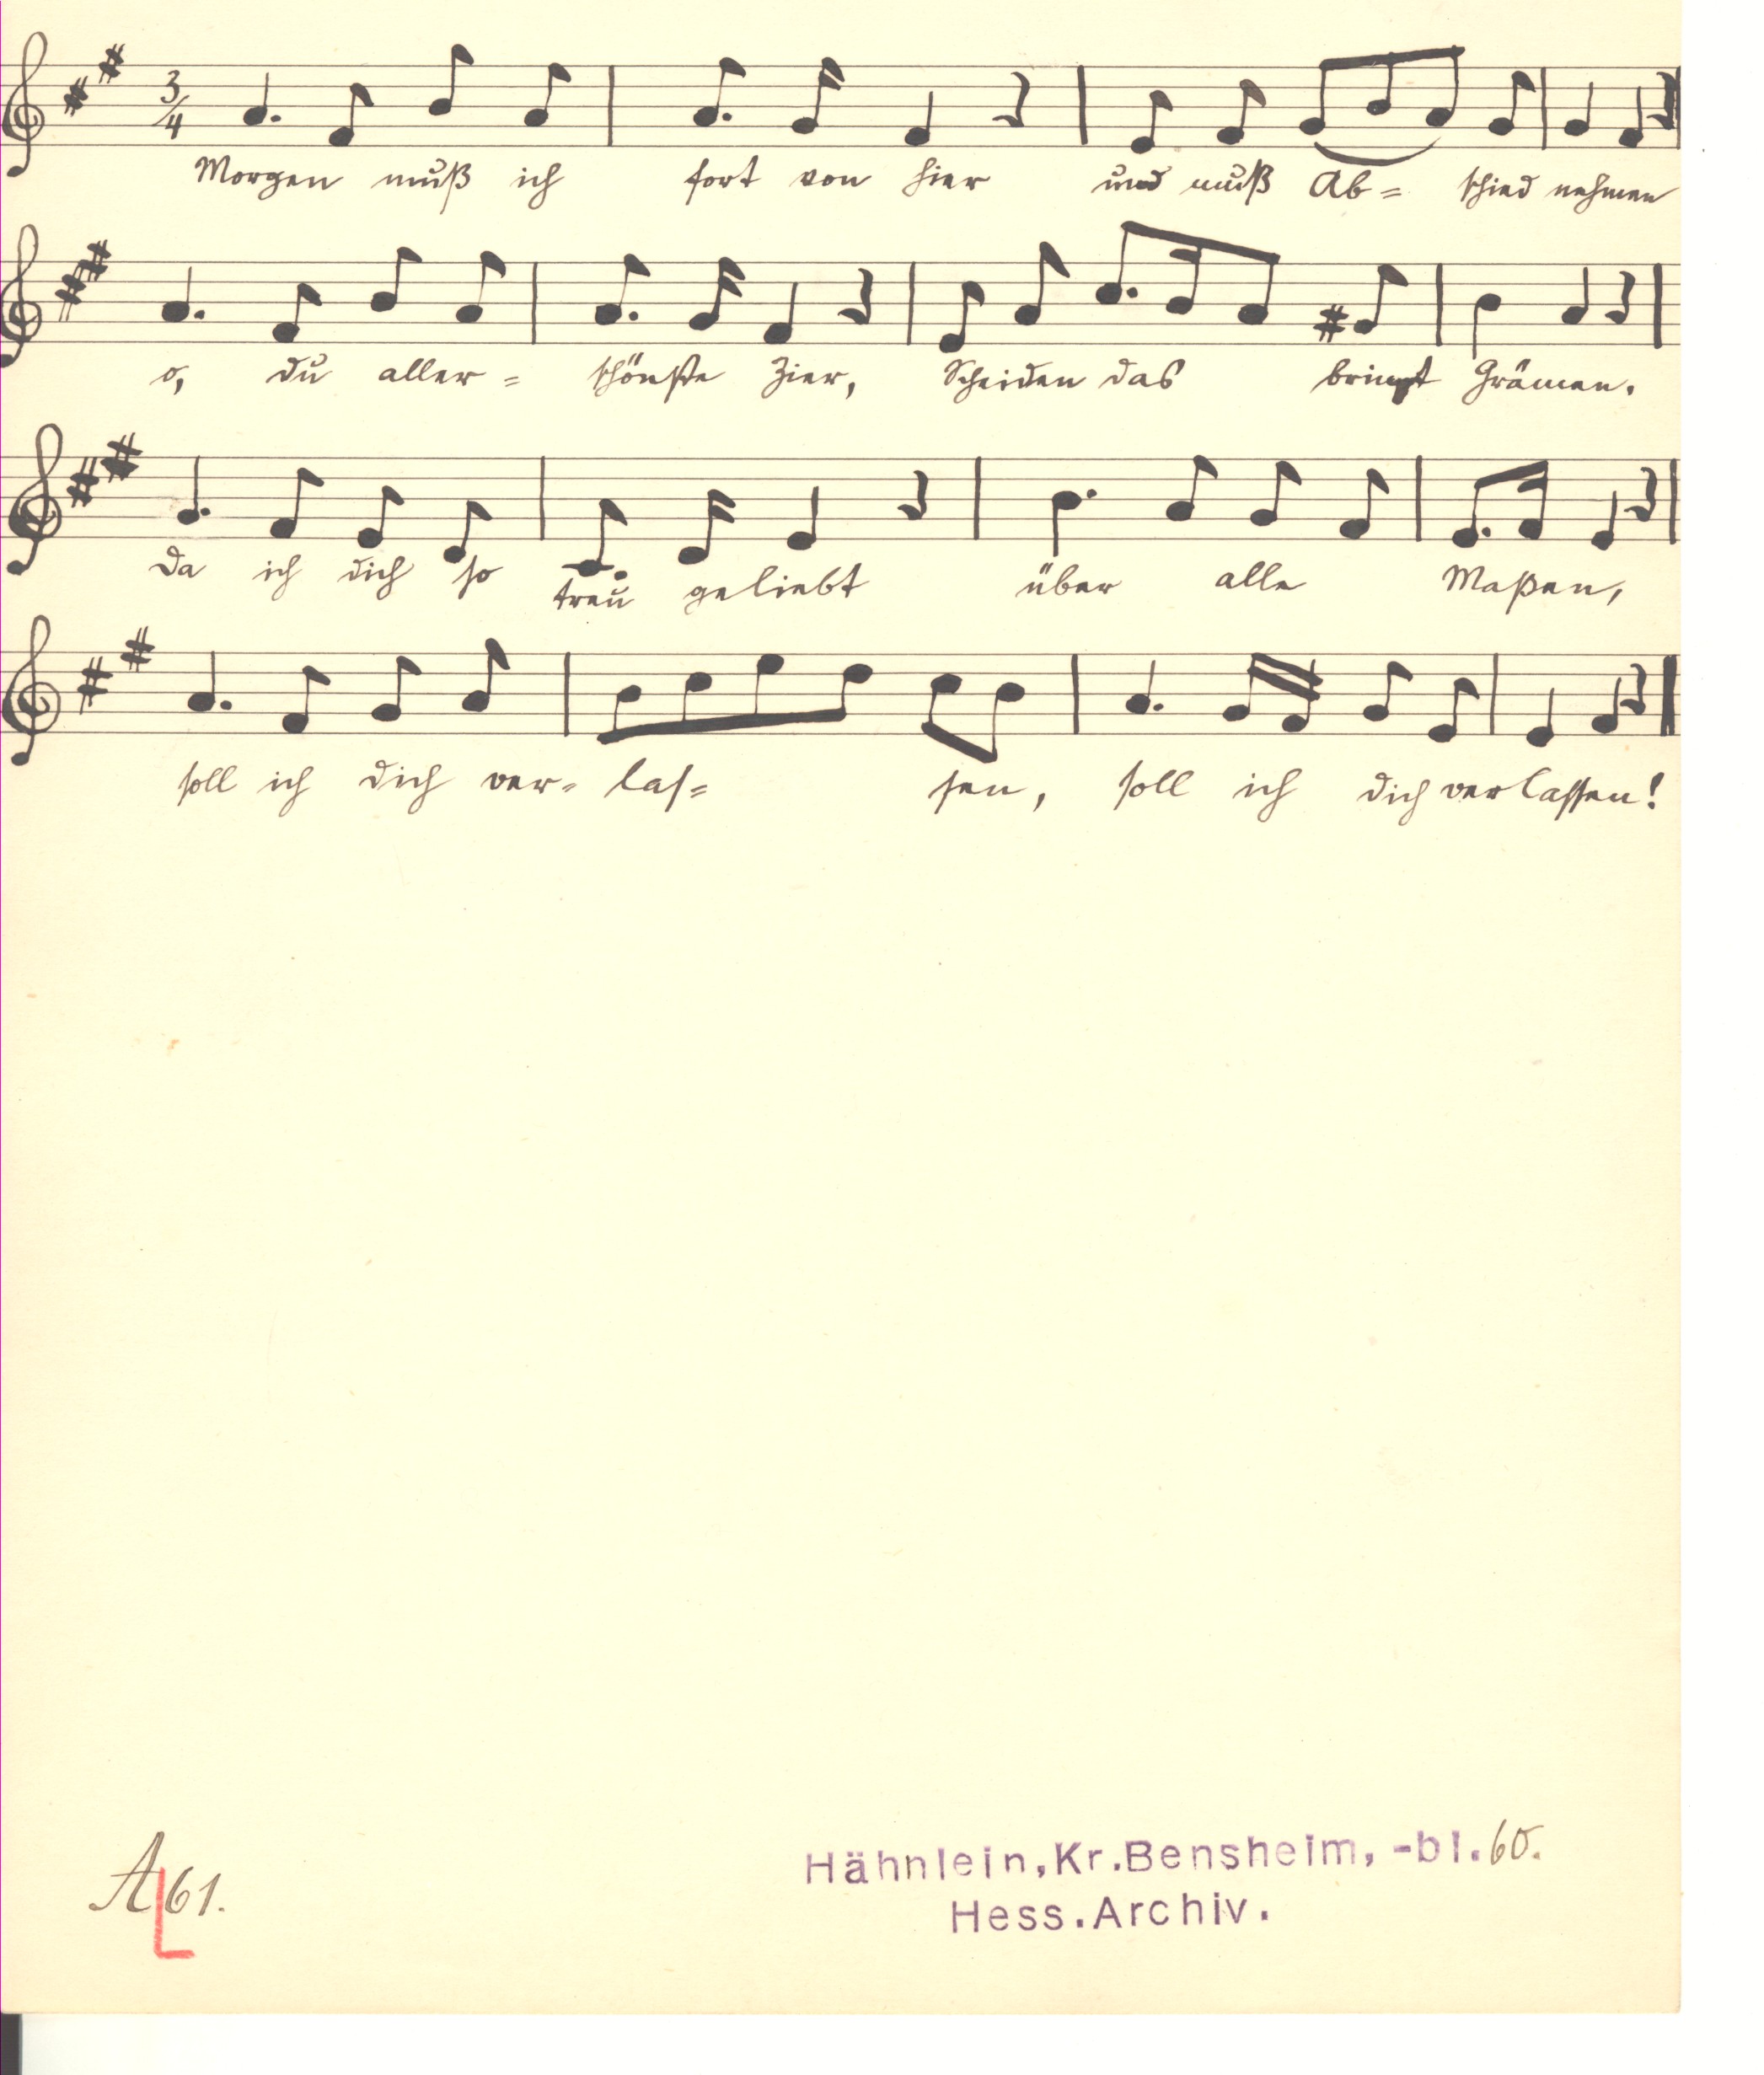 3/4
Morgen muß ich fort von hier und muß Ab= schied nehmen
o, du aller= schönste Zier, Scheiden das bringt Grämen.
da ich dich so treu geliebt über alle Maßen,
soll ich dich ver- las= sen, soll ich dich verlassen!
A 61.
Hähnlein, Kr. Bensheim, -bl. 60.
Hess. Archiv.